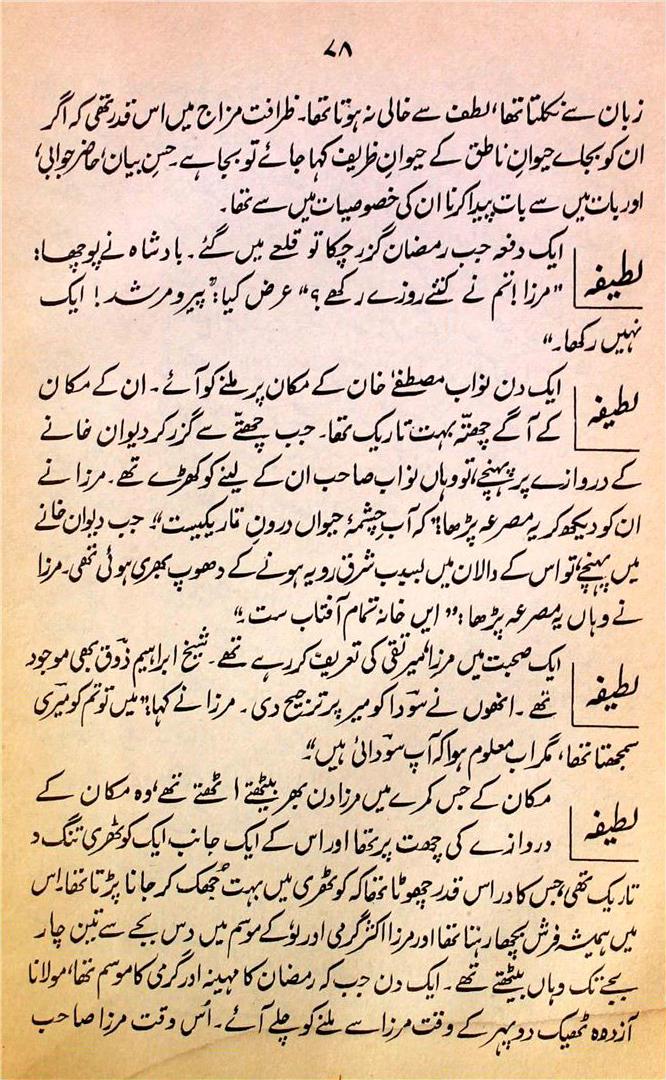 ۷۸
زبان سے نکلتا تھا، لطف سے خالی نہ ہوتا تھا۔ ظرافت مزاج میں اس قدر تھی کہ اگر
ان کو بجاے حیوانِ ناطق کے حیوانِ ظریف کہا جائے تو بجا ہے۔ حسنِ بیان، حاضر جوابی،
اور بات میں سے بات پیدا کرنا ان کی خصوصیات میں سے تھا۔
لطیفہ
ایک دفعہ جب رمضان گزر چکا تو قلعے میں گئے۔ بادشاہ نے پوچھا:
"مرزا! تم نے کتنے روزے رکھے؟" عرض کیا: "پیر و مرشد! ایک
نہیں رکھا۔"
لطیفہ
ایک دن نواب مصطفےٰ خان کے مکان پر ملنے کو آئے۔ ان کے مکان
کے آگے چھتّہ بہت تاریک تھا۔ جب چھتّے سے گزر کر دیوان خانے
کے دروازے پر پہنچے، تو وہاں نواب صاحب ان کے لینے کو کھڑے تھے۔ مرزا نے
ان کو دیکھ کر یہ مصرعہ پڑھا: "کہ آبِ چشمۂ حیواں درونِ تاریکیست"۔ جب دیوان خانے
میں پہنچے، تو اس کے دالان میں بسبب شرق رویہ ہونے کے دھوپ بھری ہوئی تھی۔ مرزا
نے وہاں یہ مصرعہ پڑھا: "ایں خانہ تمام آفتاب ست۔"
لطیفہ
ایک صحبت میں مرزا میر تقی کی تعریف کر رہے تھے۔ شیخ ابراہیم ذوق بھی موجود
تھے۔ انھوں نے سودا کو میر پر ترجیح دی۔ مرزا نے کہا: "میں تو تم کو میری
سمجھتا تھا، مگر اب معلوم ہوا کہ آپ سودائی ہیں"۔
لطیفہ
مکان کے جس کمرے میں مرزا دن بھر بیٹھتے اٹھتے تھے، وہ مکان کے
دروازے کی چھت پر تھا اور اس کے ایک جانب ایک کوٹھری تنگ و
تاریک تھی، جس کا در اس قدر چھوٹا تھا کہ کوٹھری میں بہت جھک کر جانا پڑتا تھا۔ اس
میں ہمیشہ فرش بچھا رہتا تھا اور مرزا اکثر گرمی اور لُو کے موسم میں دس بجے سے تین چار
بجے تک وہاں بیٹھتے تھے۔ ایک دن جب کہ رمضان کا مہینہ اور گرمی کا موسم تھا، مولانا
آزردہ ٹھیک دوپہر کے وقت مرزا سے ملنے کو چلے آئے۔ اُس وقت مرزا صاحب